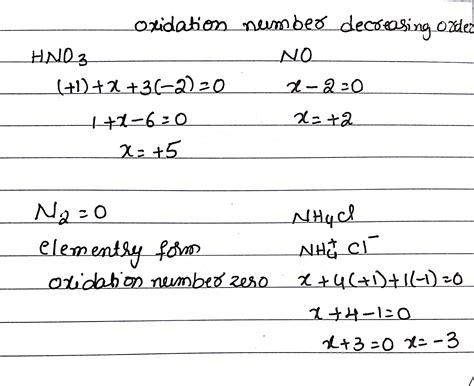 oxidation number decreasing order
HNO3
(+1)+x+3(-2)=0
1+x-6=0
x=+5
NO
x-2=0
x=+2
N2=0
elementsy form
oxidation number zero
NH4Cl
NH4+ Cl-
x+4(+1)+1(-1)=0
x+4-1=0
x+3=0 x=-3